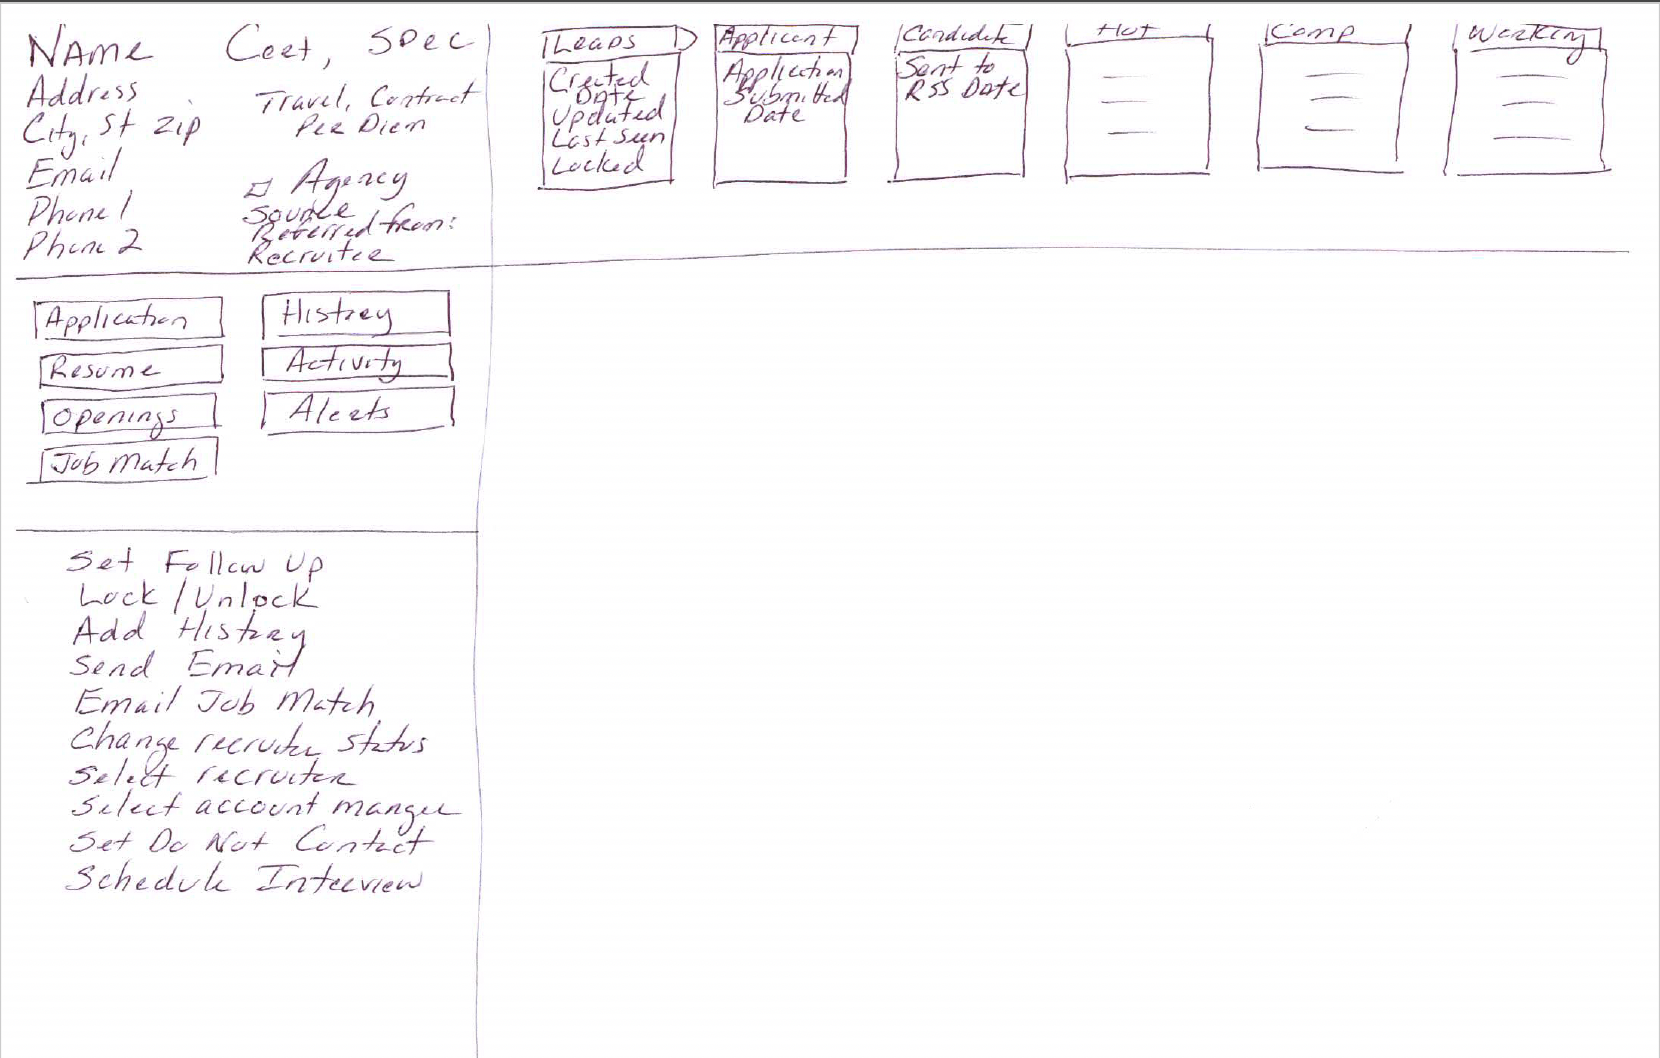 Name
Cert, Spec
Address
City, St Zip
Email
Phone 1
Phone 2
Travel, Contract
Per Diem
Agency
Source
Referred from:
Recruiter
Leads
Created
Date
Updated
Last Seen
Locked
Applicant
Application
Submitted
Date
Candidate
Sent to
RSS Date
Hot
Comp
Working
Application
Resume
Openings
Job Match
History
Activity
Alerts
Set Follow Up
Lock / Unlock
Add History
Send Email
Email Job Match
Change recruiter status
Select recruiter
Select account manger
Set Do Not Contact
Schedule Interview